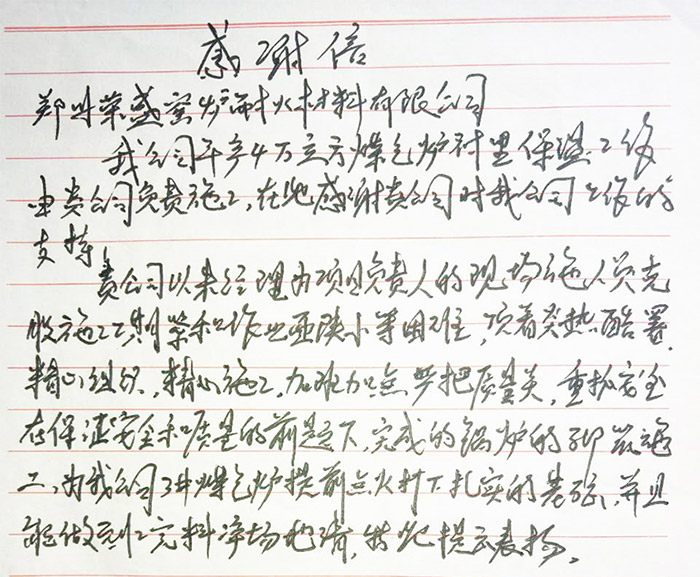 感谢信
郑州荣盛窑炉耐火材料有限公司
我公司年产4万立方煤气炉衬里保温工作
由贵公司负责施工,在此感谢贵公司对我公司工作的
支持!
贵公司以朱经理为项目负责人的现场施工人员克
服施工工期紧和作业面狭小等困难,顶着炎热酷暑,
精心组织,精心施工,加班加点严把质量关,重抓安全
在保证安全和质量的前提下,完成的锅炉的砌筑施
工,为我公司煤气炉提前点火打下扎实的基础,并且
能做到工完料净场地清,特此提示表扬。